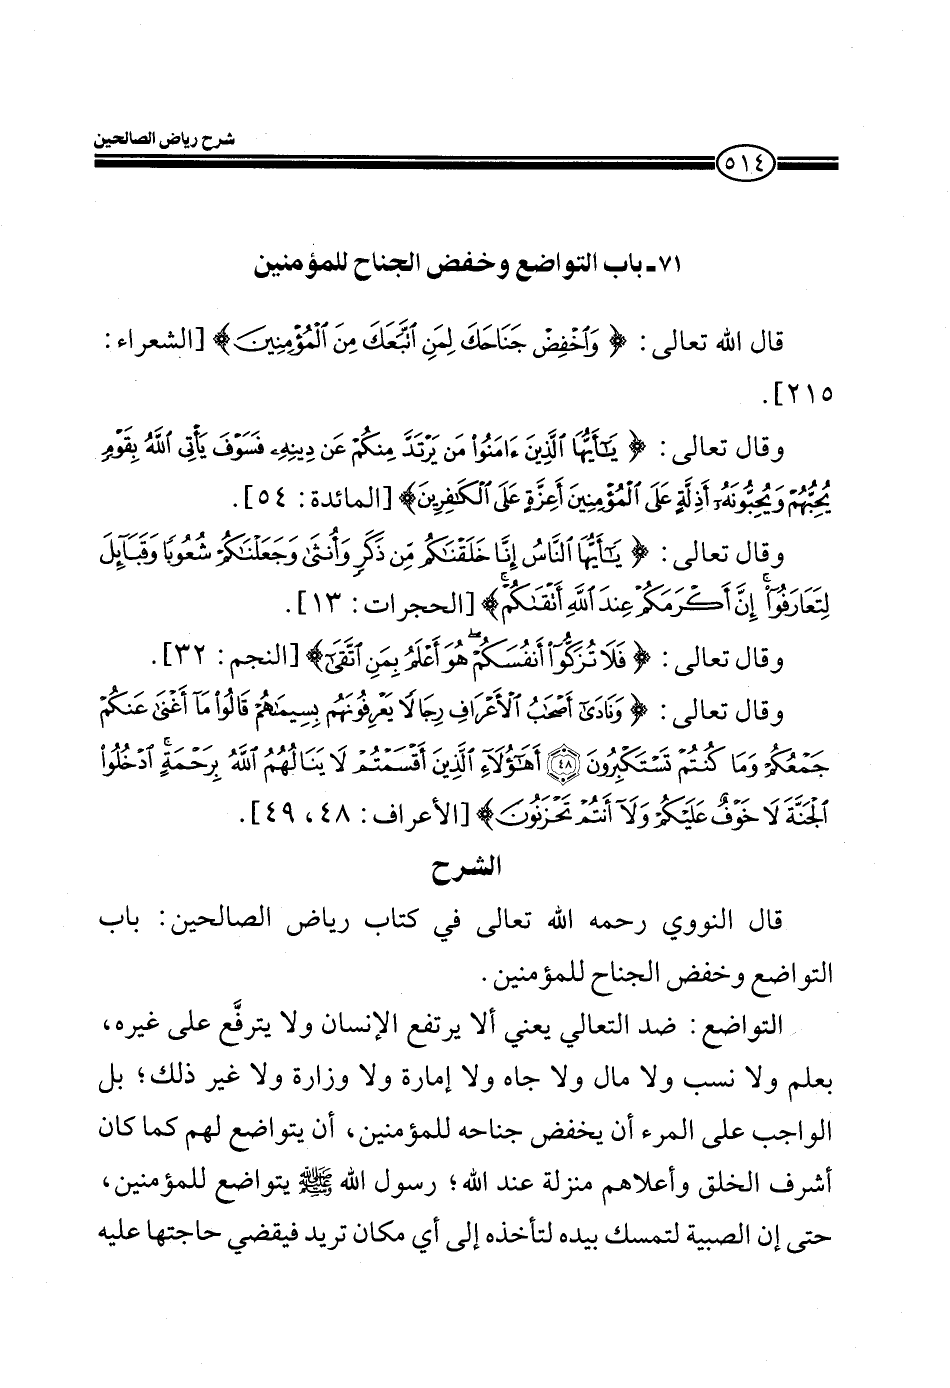 شرح رياض الصالحين
٥١٤
٧١ـ باب التواضع وخفض الجناح للمؤمنين
قال الله تعالى: ﴿ وَٱخْفِضْ جَنَاحَكَ لِمَنِ ٱتَّبَعَكَ مِنَ ٱلْمُؤْمِنِينَ﴾ [الشعراء:
٢١٥].
وقال تعالى: ﴿ يَـٰٓأَيُّهَا ٱلَّذِينَ ءَامَنُوا۟ مَن يَرْتَدَّ مِنكُمْ عَن دِينِهِۦ فَسَوْفَ يَأْتِى ٱللَّهُ بِقَوْمٍ
يُحِبُّهُمْ وَيُحِبُّونَهُۥٓ أَذِلَّةٍ عَلَى ٱلْمُؤْمِنِينَ أَعِزَّةٍ عَلَى ٱلْكَـٰفِرِينَ﴾ [المائدة: ٥٤].
وقال تعالى: ﴿ يَـٰٓأَيُّهَا ٱلنَّاسُ إِنَّا خَلَقْنَـٰكُم مِّن ذَكَرٍ وَأُنثَىٰ وَجَعَلْنَـٰكُمْ شُعُوبًا وَقَبَآئِلَ
لِتَعَارَفُوٓا۟ ۚ إِنَّ أَكْرَمَكُمْ عِندَ ٱللَّهِ أَتْقَىٰكُمْ ۚ﴾ [الحجرات: ١٣].
وقال تعالى: ﴿ فَلَا تُزَكُّوٓا۟ أَنفُسَكُمْ ۖ هُوَ أَعْلَمُ بِمَنِ ٱتَّقَىٰٓ﴾ [النجم: ٣٢].
وقال تعالى: ﴿ وَنَادَىٰٓ أَصْحَـٰبُ ٱلْأَعْرَافِ رِجَالًا يَعْرِفُونَهُم بِسِيمَـٰهُمْ قَالُوا۟ مَآ أَغْنَىٰ عَنكُمْ
جَمْعُكُمْ وَمَا كُنتُمْ تَسْتَكْبِرُونَ ٤٨ أَهَـٰٓؤُلَآءِ ٱلَّذِينَ أَقْسَمْتُمْ لَا يَنَالُهُمُ ٱللَّهُ بِرَحْمَةٍ ۚ ٱدْخُلُوا۟
ٱلْجَنَّةَ لَا خَوْفٌ عَلَيْكُمْ وَلَآ أَنتُمْ تَحْزَنُونَ﴾ [الأعراف: ٤٨، ٤٩].
الشرح
قال النووي رحمه الله تعالى في كتاب رياض الصالحين: باب
التواضع وخفض الجناح للمؤمنين.
التواضع: ضد التعالي يعني ألا يرتفع الإنسان ولا يترفَّع على غيره،
بعلم ولا نسب ولا مال ولا جاه ولا إمارة ولا وزارة ولا غير ذلك؛ بل
الواجب على المرء أن يخفض جناحه للمؤمنين، أن يتواضع لهم كما كان
أشرف الخلق وأعلاهم منزلة عند الله؛ رسول الله ﷺ يتواضع للمؤمنين،
حتى إن الصبية لتمسك بيده لتأخذه إلى أي مكان تريد فيقضي حاجتها عليه